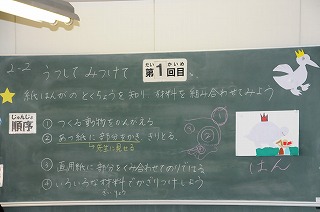 2-2 うつして みつけて
たい かいめ
第1回目
紙はんがのとくちょうを知り 材料を組み合わせてみよう
じゅんじょ
順序
① つくる動物をかんがえる
② あつ紙に部分をかき、きりとる。
↳先生に見せる
③ 画用紙に部分をくみ合わせてのりではる。
④ いろいろな材料でかざりつけしよう
②
はん